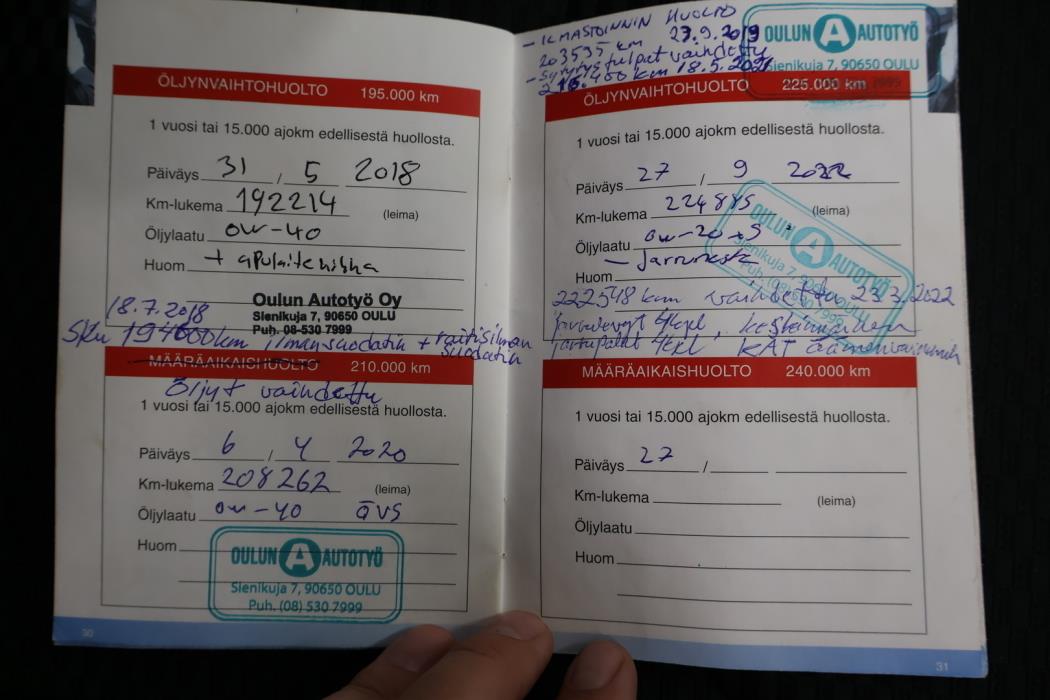 ÖLJYNVAIHTOHUOLTO 195.000 km
1 vuosi tai 15.000 ajokm edellisestä huollosta.
Päiväys 31 / 5 2018
Km-lukema 192214 (leima)
Öljylaatu 0W-40
Huom + apulaitehihna
Oulun Autotyö Oy
Sienikuja 7, 90650 OULU
Puh. 08-530 7999
18.7.2018
km ilmansuodatin + raitisilman
suodatin
MÄÄRÄAIKAISHUOLTO 210.000 km
Öljyt vaihdettu
1 vuosi tai 15.000 ajokm edellisestä huollosta.
Päiväys 6 / 4 2020
Km-lukema 208262 (leima)
Öljylaatu 0W-40 ÖVS
Huom
OULUN A AUTOTYÖ
Sienikuja 7, 90650 OULU
Puh. (08) 530 7999
30
- ILMASTOINNIN HUOLTO
203595 km 27.9.2019
- Sytytystulpat vaihdettu
400 km 18.5.2021
OULUN A AUTOTYÖ
Sienikuja 7, 90650 OULU
ÖLJYNVAIHTOHUOLTO 225.000 km
1 vuosi tai 15.000 ajokm edellisestä huollosta.
Päiväys 27 / 9 2022
Km-lukema 224885 (leima)
Öljylaatu 0W-20
Huom - Jarruneste
OULUN A AUTOTYÖ
Sienikuja 7, 90650 OULU
Puh. (08) 530 7999
222548 km vaihdettu 23.3.2022
jarrulevyt 4kpl,
jarrupalat 4kpl KAT
MÄÄRÄAIKAISHUOLTO 240.000 km
1 vuosi tai 15.000 ajokm edellisestä huollosta.
Päiväys 27 /
Km-lukema (leima)
Öljylaatu
Huom
31